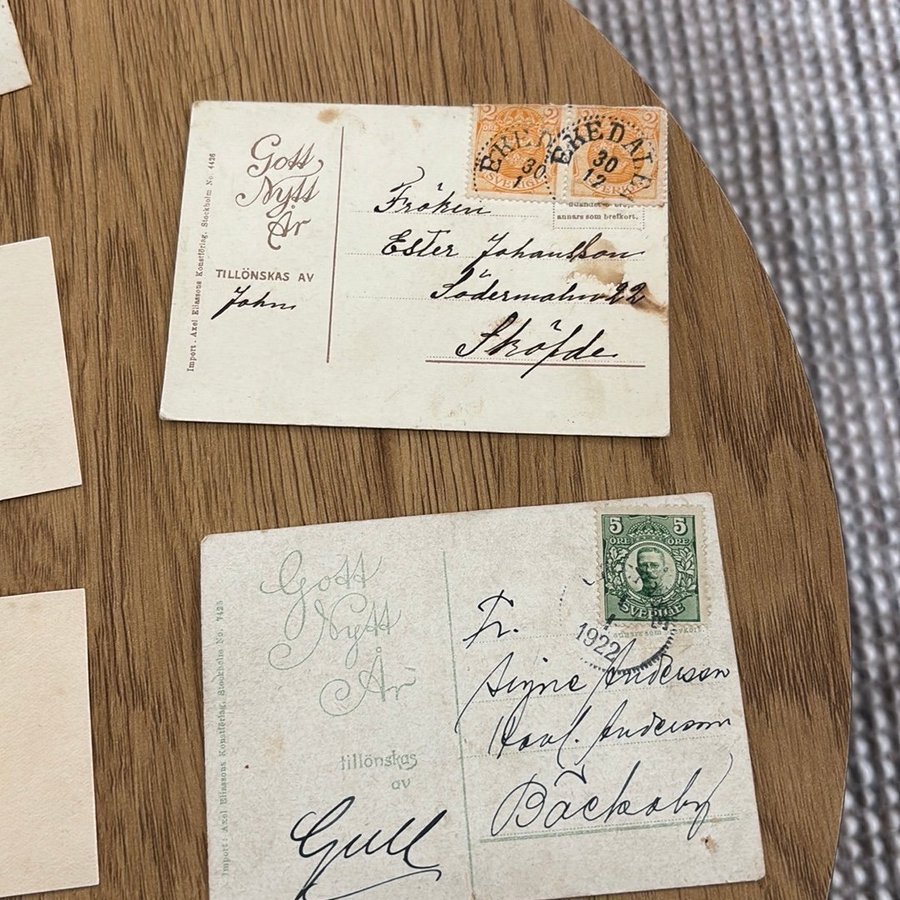 Gott
Nytt
År
TILLÖNSKAS AV
John
Import. Axel Eliassons Konstförlag. Stockholm No. 4426
2 2
ÖRE
SVERIGE
30
1
2
EKEDALEN
30
12
annars som brefkort.
Fröken
Ester Johansson
Södermalm 22
Sköfde
Gott
Nytt
År
tillönskas
av
Gull
Import: Axel Eliassons Konstförlag. Stockholm No. 7425
5 5
ÖRE ÖRE
SVERIGE
1922
annars som
Fr.
Signe Anderson
Anderson
Bäckaby